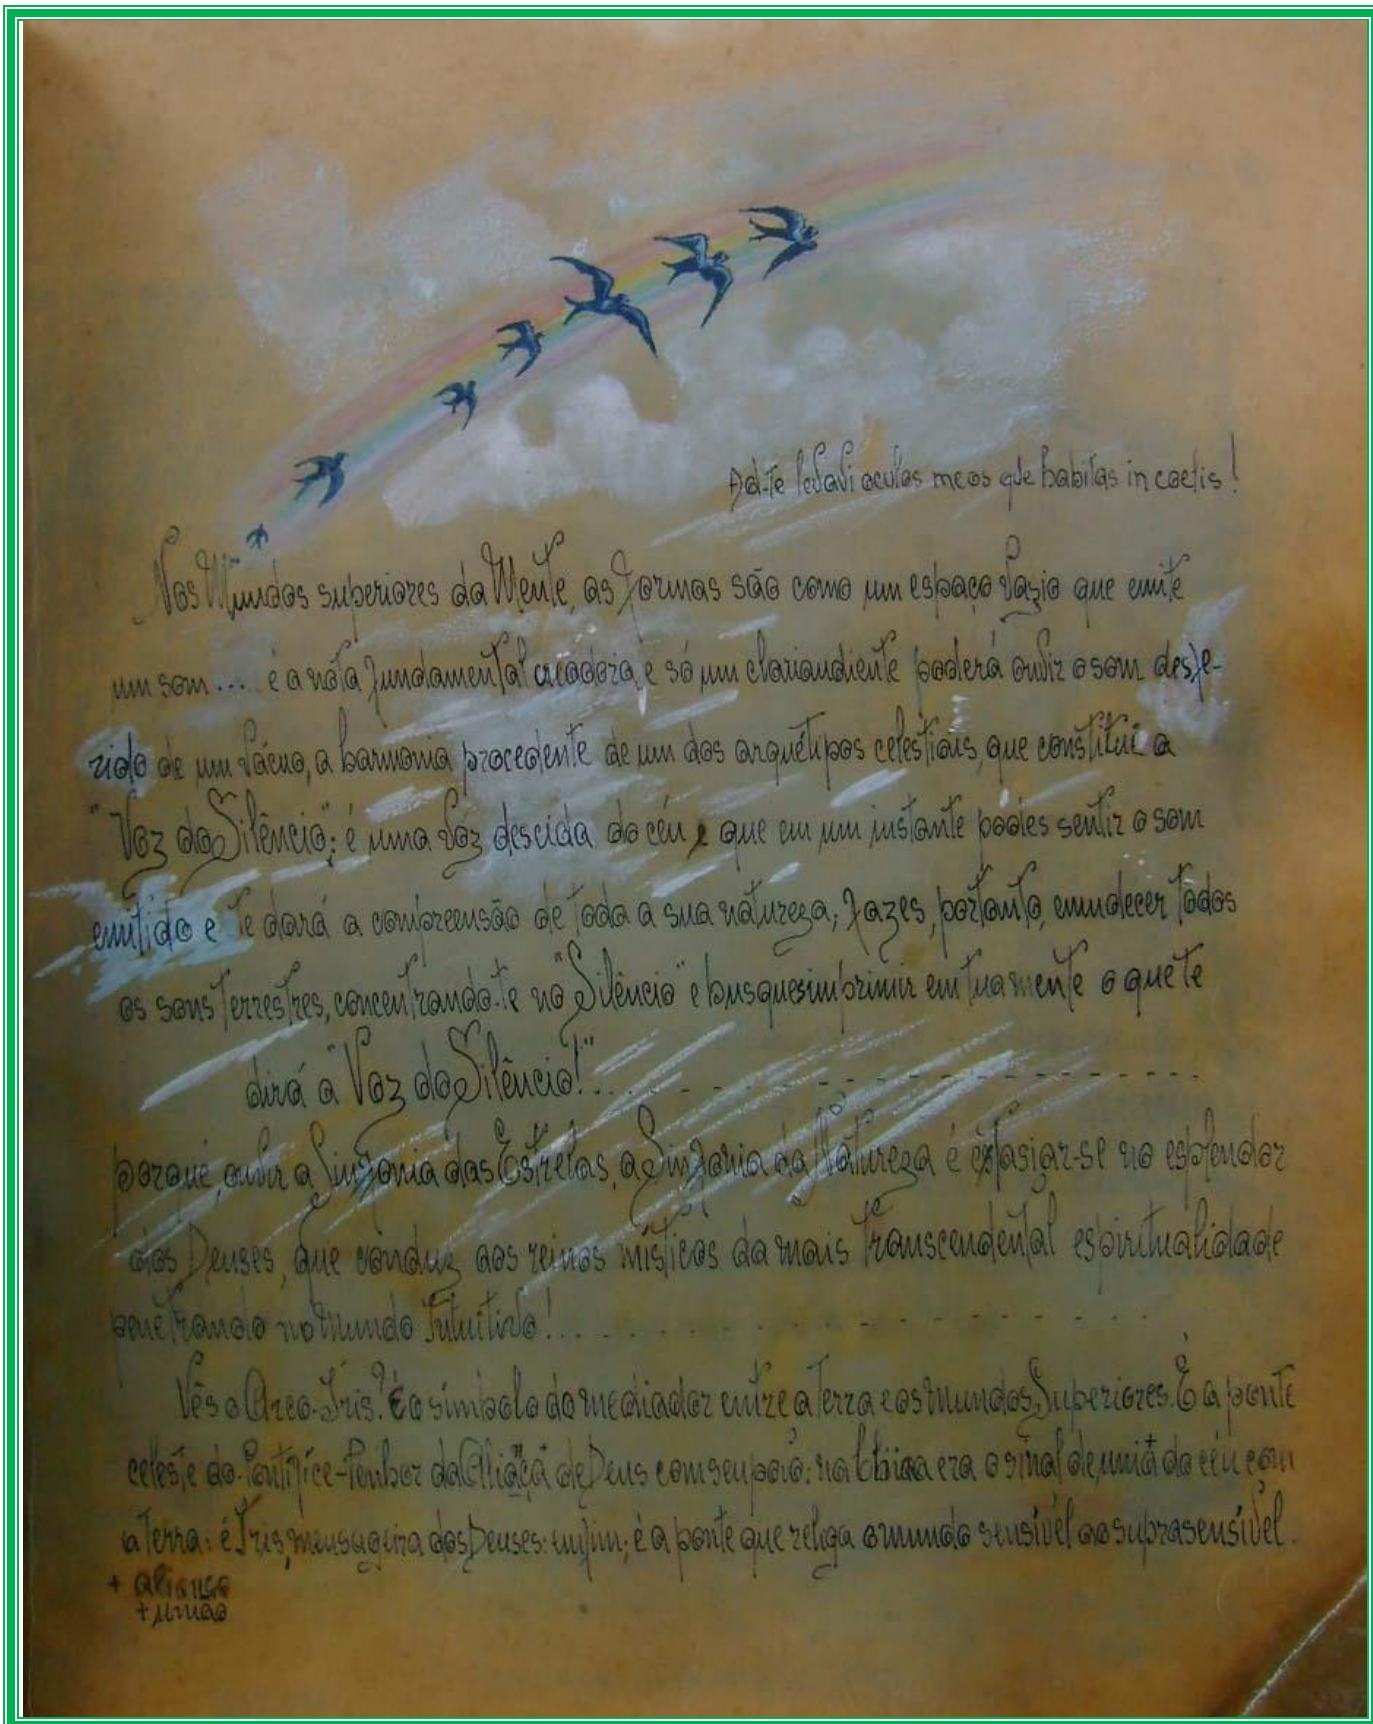 Ad-te levavi oculos meos que habitas in coelis!
Nos Mundos superiores da Mente, as formas são como um espaço vazio que emite
um som... é a nota fundamental creadora, e só um clariaudiente poderá ouvir o som desfe-
rido de um vácuo, a harmonia procedente de um dos arquétipos celestiais, que constitui a
"Voz do Silêncio"; é uma vóz descida do céu e que em um instante podes sentir o som
emitido e te dará a compreensão de toda a sua natureza; fazes, portanto, emudecer todos
os sons terrestres, concentrando-te no "Silêncio" e busques imprimir em tua mente o que te
dirá a "Voz do Silêncio!"...
porque, ouvir a Sinfonia das Estrelas, a Sinfonia da Natureza é extasiar-se no esplendor
dos Deuses, que conduz aos reinos místicos da mais transcendental espiritualidade
penetrando no mundo Intuitivo!...
Vês o Arco-Iris? É o símbolo do mediador entre a terra e os mundos Superiores. É a ponte
celeste do Pontífice-Penhor da de Deus com seu povo: na era o sinal de união do céu com
a Terra: é Iris, mensageira dos Deuses: enfim; é a ponte que religa o mundo sensível ao suprasensível.
+ aliança
+ união